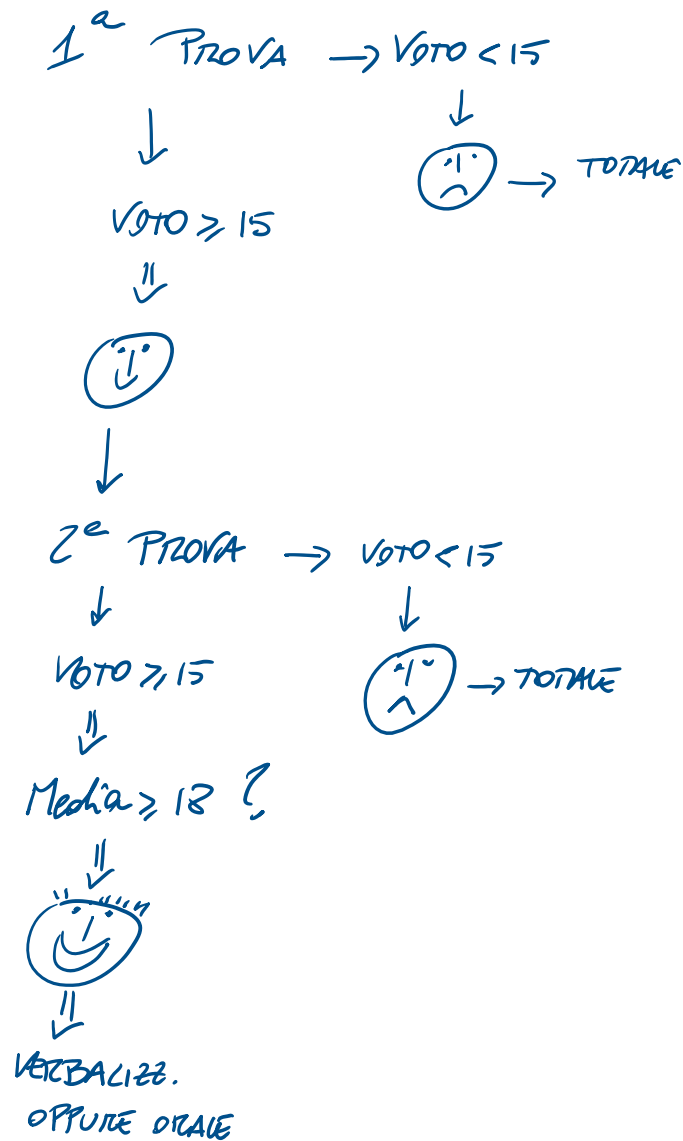 1ª PROVA → VOTO < 15
→ TOTALE
VOTO ⩾ 15
2ª PROVA → VOTO < 15
VOTO ⩾ 15
→ TOTALE
Media ⩾ 18 ?
VERBALIZZ.
OPPURE ORALE